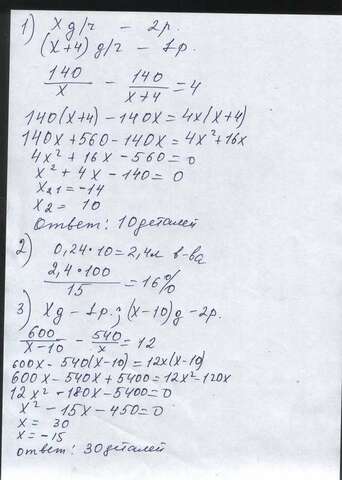 1) х д/ч - 2р.
(х+4) д/ч - 1р.
140/х - 140/х+4 = 4
140(х+4) - 140х = 4х(х+4)
140х + 560 - 140х = 4х² + 16х
4х² + 16х - 560 = 0
х² + 4х - 140 = 0
х₂₁ = -14
х₂ = 10
Ответ: 10 деталей
2) 0,24·10 = 2,4л в-ва
2,4·100/15 = 16%
3) хд - 1р.; (х-10)д - 2р.
600/х-10 - 540/х = 12
600х - 540(х-10) = 12х(х-10)
600х - 540х + 5400 = 12х² - 120х
12х² - 180х - 5400 = 0
х² - 15х - 450 = 0
х = 30
х = -15
ответ: 30 деталей